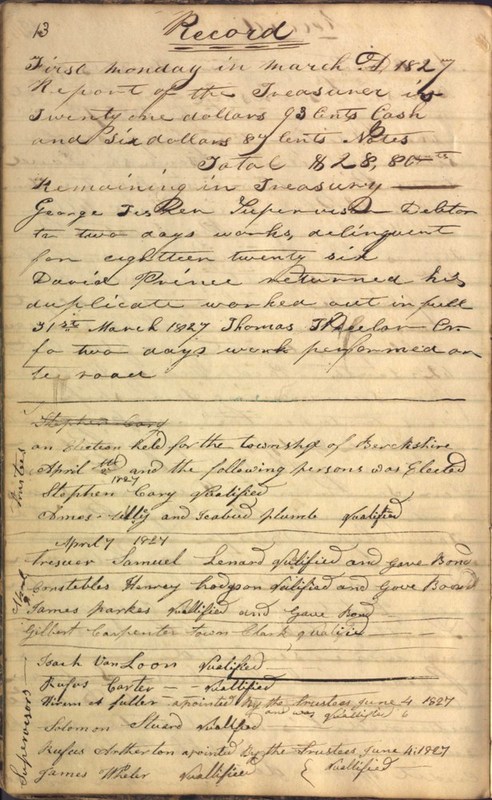 13 Record
First Monday in March AD 1827
Report of the Treasurer is
Twenty one dollars 93 Cents Cash
and Six dollars 87 Cents Notes
Total $28,80 cts
Remaining in Treasury
George Supervisor Debtor
to two days works, delinquent
for eighteen twenty six
David Prince returned his
duplicate worked out in full
31st March 1827 Thomas Cr
fo two days work performed on
te road
Stephen Cary
an election held for the township of Berckshire
April 1827 and the following persons was Elected
Trustees
Stephen Cary Qualified
Amos and plumb Qualified
April 7 1827
tresuer Samuel Lenard Qulified and gave Bond
Constables Harvey hodgson Qulified and Gove Boond
James parkes Quallified and Gave Bond
Gilbert Carpenter town Clark qualifie
Supervisors
Isach Van Loon Qualified
Rufus Carter Quallified
fuller apointed by the trustees June 4 1827
and was Quallified 6
Solomon Quallified
Rufus Artherton apointed by the Trustees June 4: 1827
James Wheler Quallified { Quallified